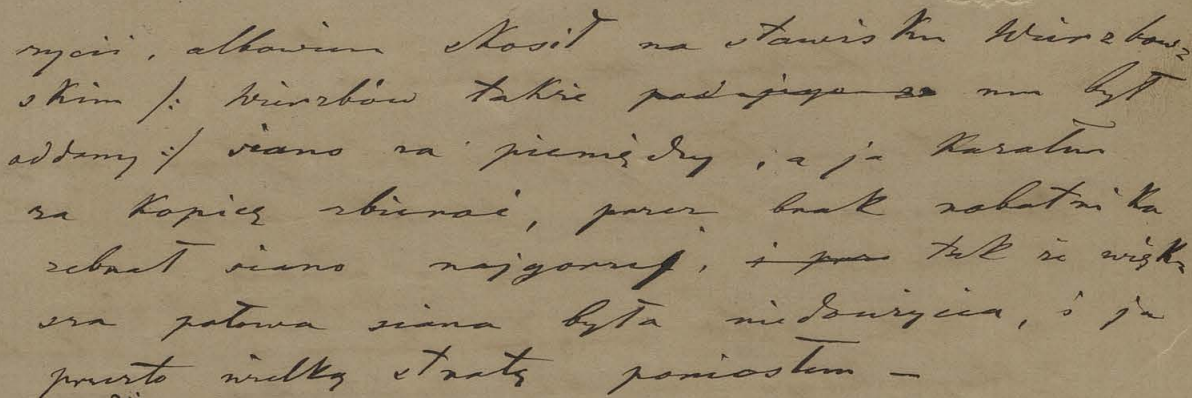 życii, albowiem skosił na stawisku Wierzbow-
skim /: Wierzbów także pod jego za mu był
oddany :/ siano za pieniędzy, a ja kazałem
za kopicę zbierać, przez brak robotnika
zebrał siano najgorzej, i prze tak że więk-
sza połowa siana była nie do użycia, i ja
przez to wielką stratę poniosłem —